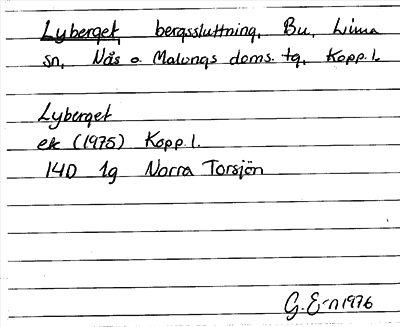 Lyberget, bergssluttning, Bu, Lima
sn, Nås o. Malungs doms. tg, Kopp. l.
Lyberget
ek (1975) Kopp. l.
14D 1g Norra Torsjön
G. E-n 1976